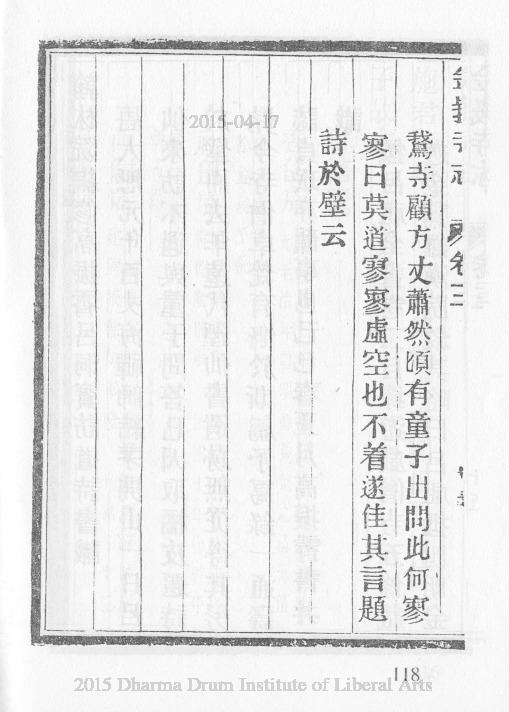 鵞寺顧方丈蕭然頃有童子出問此何寥
寥曰莫道寥寥虛空也不着遂佳其言題
詩於壁云
2015-04-17
118
2015 Dharma Drum Institute of Liberal Arts